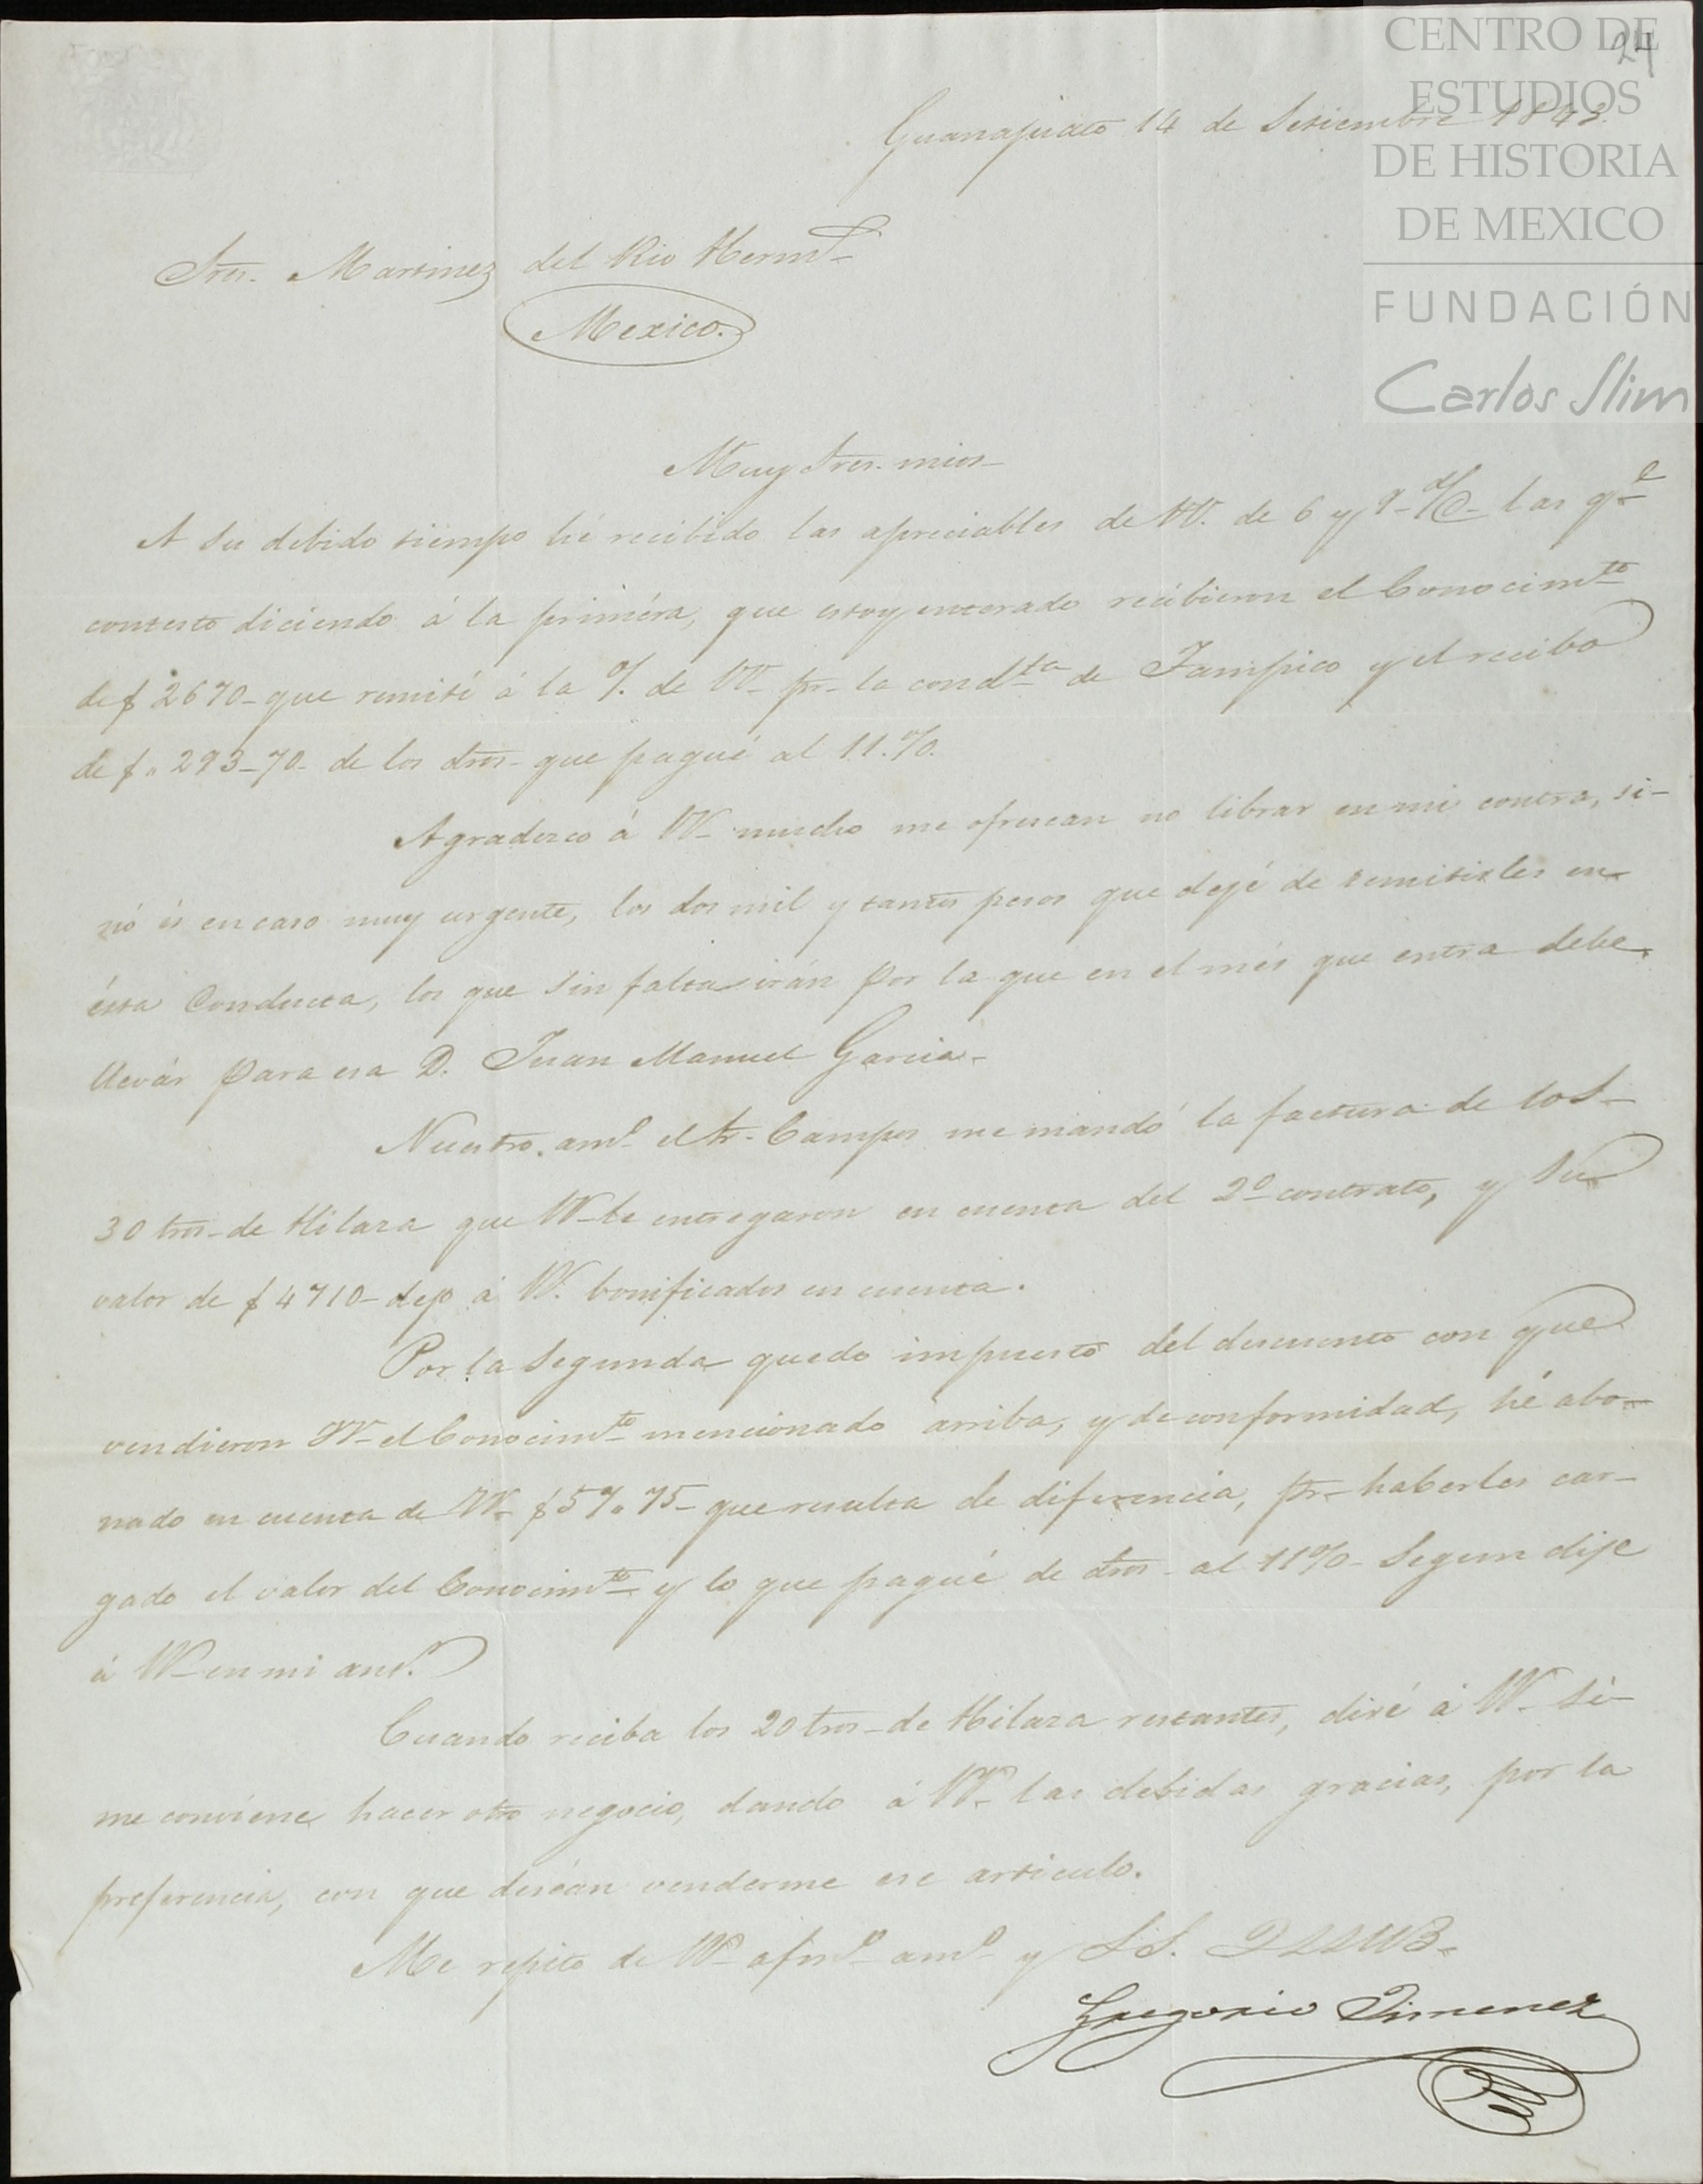 CENTRO DE
ESTUDIOS
DE HISTORIA
DE MEXICO
FUNDACIÓN
Carlos Slim
24
Guanajuato 14 de Setiembre 1843.
Sres. Martinez del Rio Herm.s
Mexico.
Muy Sres. mios
A su debido tiempo hé recibido las apreciables de VV. de 6 y 9 las q.e
contesto diciendo á la priméra, que estoy enterado recibieron el Conocim.to
de $ 2670 - que remití á la % de VV - pr. la cond.ta de Tampico y el recibo
de $. 293-70 - de los dros - que pagué al 11.%.
Agradezco á VV - mucho me ofrescan no librar en mi contra, si-
nó és en caso muy urgente, los dos mil y tantos pesos que dejé de remitirles en
ésta Conducta, los que sin falta irán por la que en el més que entra debe
llevár para esa D. Juan Manuel Garcia -
Nuestro am.o el Sr. Campos me mandó la factura de los -
30 tros - de Hilaza que VV - le entregaron en cuenta del 2.o contrato, y su
valor de $ 4710 - dejo á VV. bonificados en cuenta.
Por la segunda quedo impuesto del descuento con que
vendieron VV - el Conocim.to mencionado arriba, y de conformidad, hé abo-
nado en cuenta de VV - $ 57.75 - que resulta de diferencia, pr - haberles car-
gado el valor del Conocim.to y lo que pagué de dros - al 11% - Segun dije
á VV - en mi ant.r
Cuando reciba los 20 tros - de Hilaza restantes, diré á VV - si -
me conviene hacer otro negocio, dando á VV - las debidas gracias, por la
preferencia, con que deséan venderme ese articulo.
Me repito de VV - afmo am.o y S.S. Q S S M B.
Gregorio Jimenez